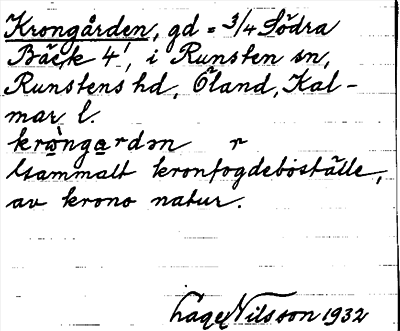 Krongården, gd = 3/4 Södra
Bäck 4¹, i Runsten sn,
Runstens hd, Öland, Kal-
mar l.
krò̱nga̱rdən r
Gammalt kronfogdeboställe,
av krono natur.
Nilsson 1932